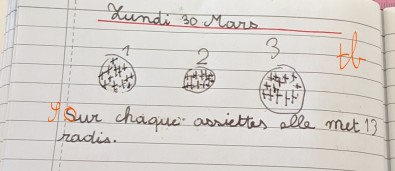 Lundi 30 Mars
1 2 3
tb
Sur chaque assiettes elle met 13
radis.